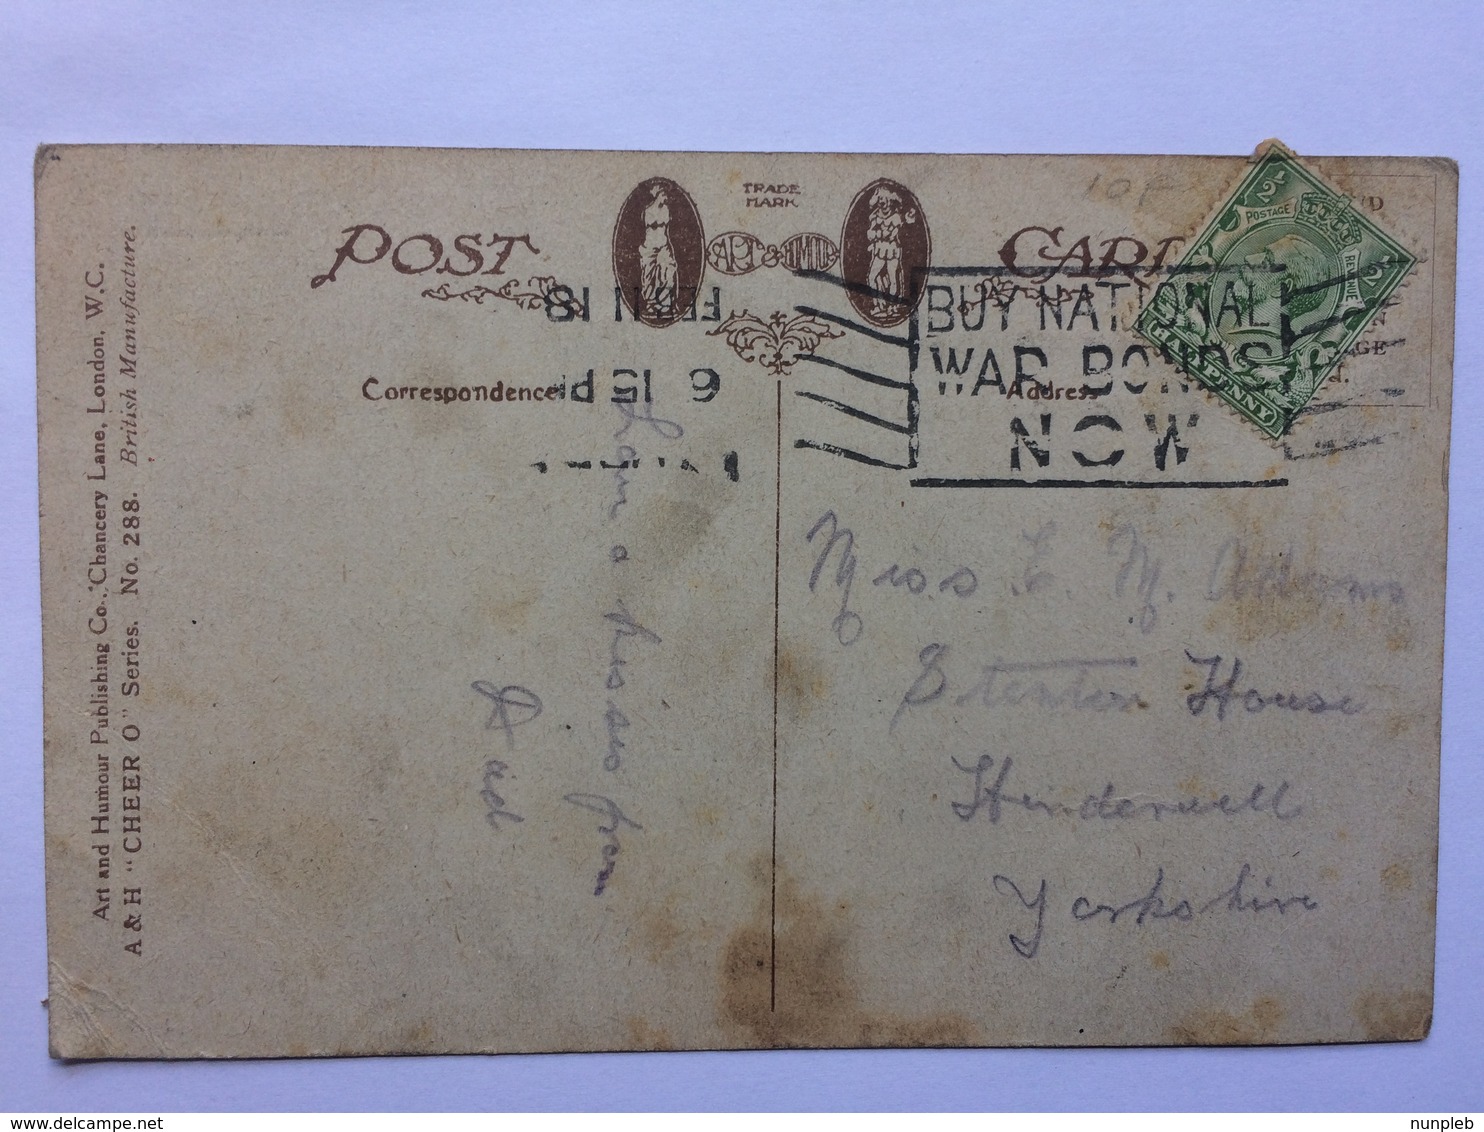 Art and Humour Publishing Co., Chancery Lane, London, W.C.
A & H "CHEER O" Series. No. 288. British Manufacture.
POST CARD
TRADE
MARK
ART & HUMOUR
Correspondence
Address
10F
FEB 11 18
6 15 PM
BUY NATIONAL
WAR BONDS
NOW
POSTAGE REVENUE
½ ½
HALFPENNY
from
Miss E. M. Addams
Stenton House
Hinderwell
Yorkshire
delcampe.net
nunpleb